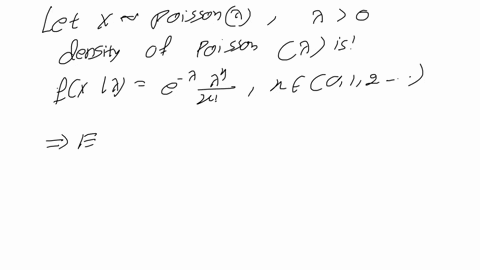 Let X ~ Poisson(λ), λ > 0
density of Poisson (λ) is!
f(x|λ) = e^{-λ} λ^x/x!, x ∈ (0,1,2 --)
⇒ E